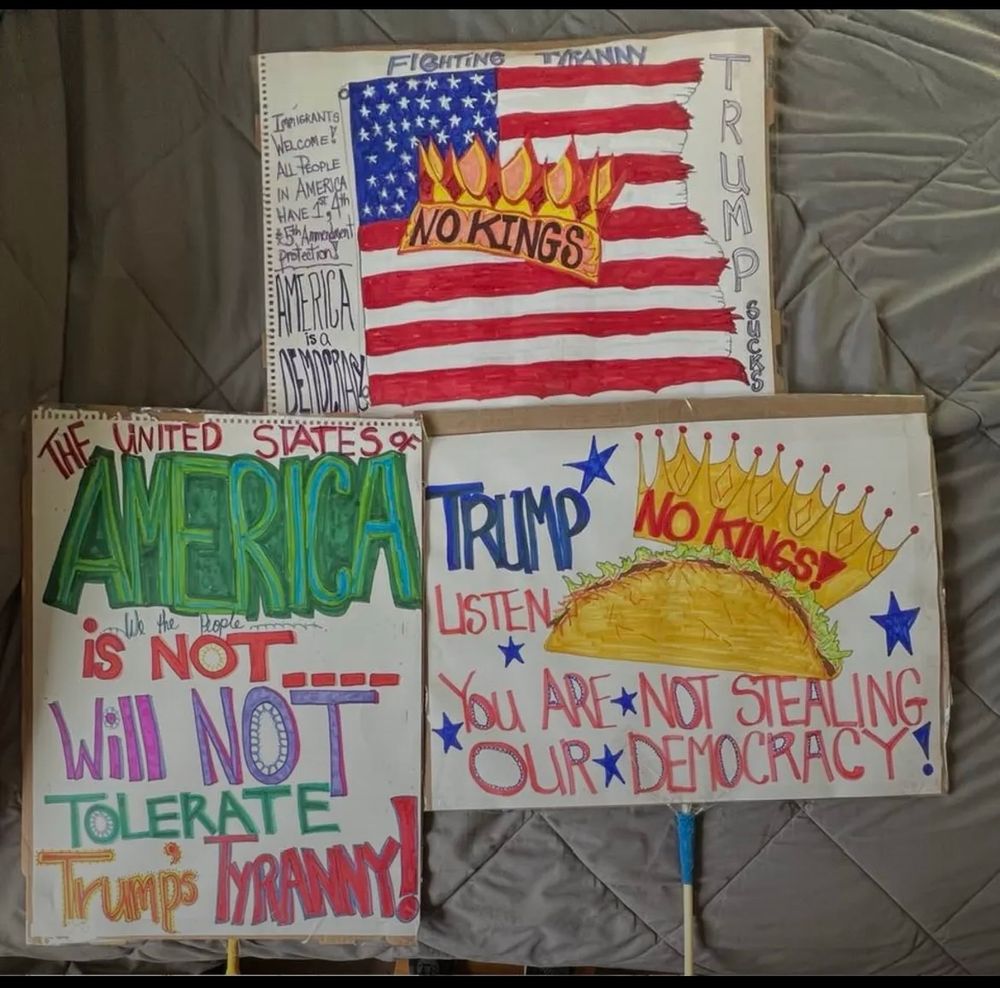 FIGHTING TYRANNY
IMMIGRANTS
WELCOME!
ALL PEOPLE
IN AMERICA
HAVE 1st, 4th
& 5th Ammendment
protection!
AMERICA
is a
DEMOCRACY
NO KINGS
TRUMP
SUCKS
THE UNITED STATES OF
AMERICA
We the People
is NOT
Will NOT
TOLERATE
Trump's TYRANNY!
TRUMP
NO KINGS!
LISTEN
You ARE NOT STEALING
OUR DEMOCRACY!